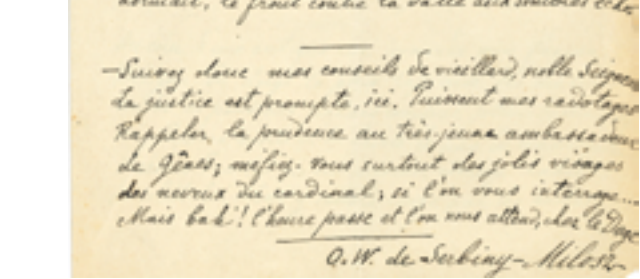 dormait, le front contre la
—Suivez donc mes conseils de vieillard, noble Seigneur
La justice est prompte, ici. Puissent mes radotages
Rappeler la prudence au très-jeune ambassadeur
de Gênes; méfiez-vous surtout des jolis visages
des neveux du cardinal; si l'on vous interroge...
Mais bah! l'heure passe et l'on nous attend, chez le Doge
O.W. de Serbiny-Milosz